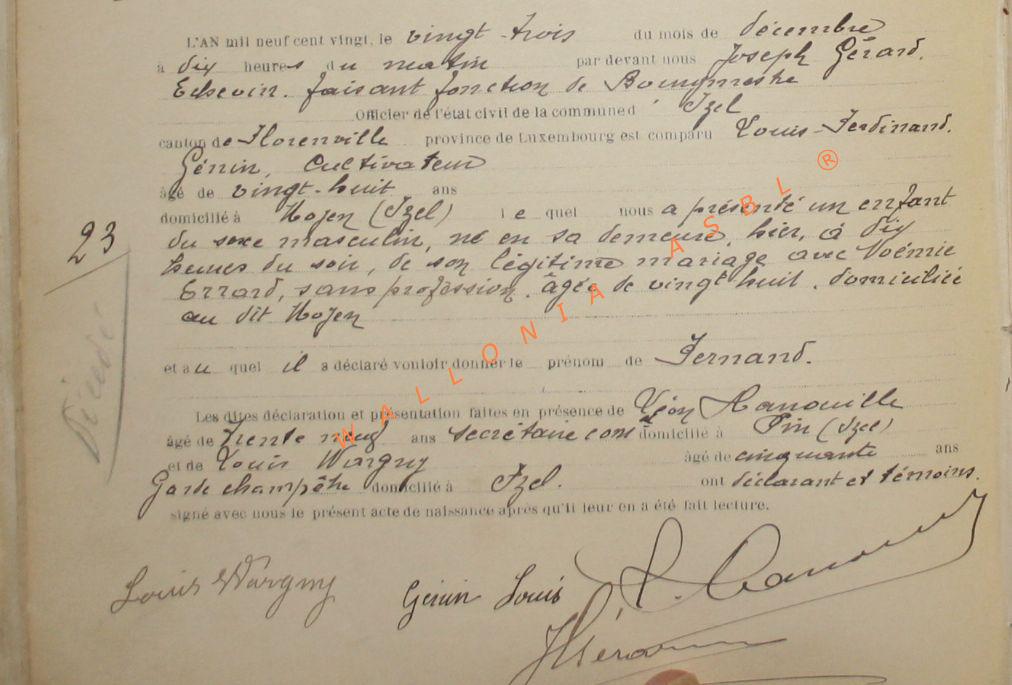 L'AN mil neuf cent vingt, le vingt-trois du mois de décembre
à dix heures du matin par devant nous Joseph Gérard,
Echevin, faisant fonction de Bourgmestre
Officier de l'état civil de la commune d'Izel
canton de Florenville province de Luxembourg est comparu Louis-Ferdinand
Génin, Cultivateur
âgé de vingt-huit ans
domicilié à Moyen (Izel) le quel nous a présenté un enfant
du sexe masculin, né en sa demeure, hier, à dix
heures du soir, de son légitime mariage avec Noémie
Errard, sans profession, âgée de vingt huit, domiciliée
au dit Moyen
23
Décédé
et au quel il a déclaré vouloir donner le prénom de Fernand.
Les dites déclaration et présentation faites en présence de Léon Hanouille
âgé de Trente neuf ans secrétaire com domicilié à Pin (Izel)
et de Louis Wargny âgé de cinquante ans
Garde champêtre domicilié à Izel. ont déclarant et témoins
signé avec nous le présent acte de naissance après qu'il leur en a été fait lecture.
Louis Wargny Génin Louis
JGérard
WALLONIA ASBL ®